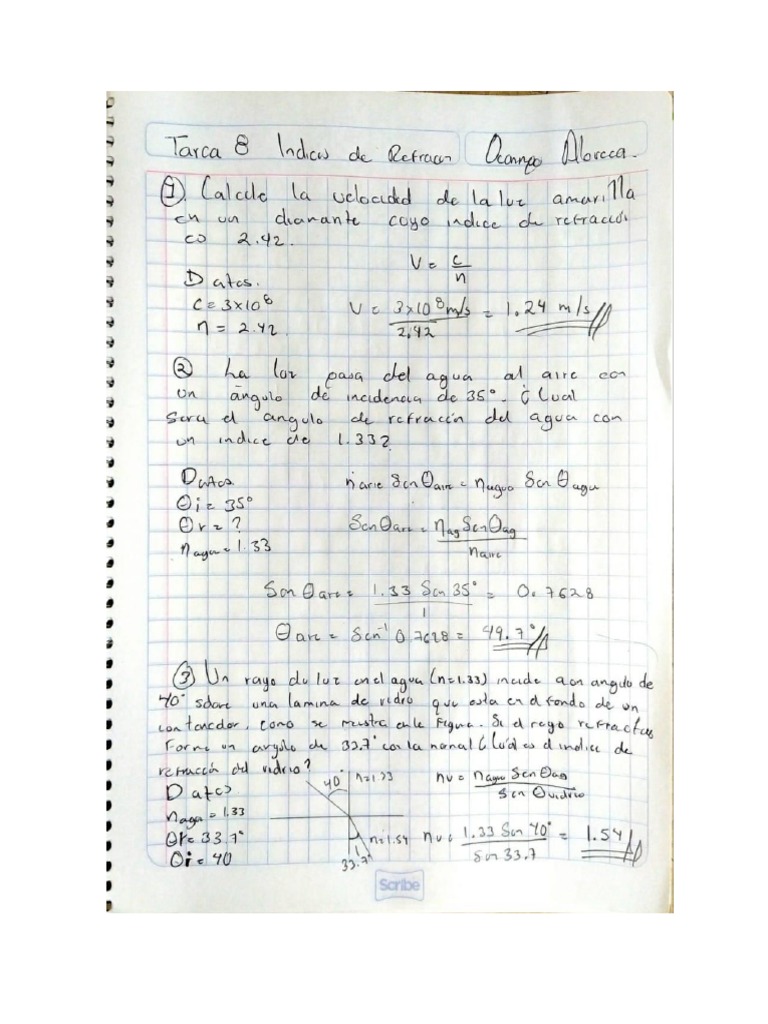 Tarea 8 Indices de Refraccn Ocampo Abreca.
① Calcule la velocidad de la luz amarilla
en un diamante coyo indice de refraccion
es 2.42.
V = c/n
Datos.
C = 3x10⁸
n = 2.42.
V = 3x10⁸ m/s / 2.42 = 1.24 m/s
② La luz pasa del agua al aire con
un ángulo de incidencia de 35°. ¿Cual
sera el angulo de refracción del agua con
un indice de 1.33?
Datos.
θi = 35°
θr = ?
nagua = 1.33
naire Sen θaire = nagua Sen θagu
Sen θaire = nag Sen θag / naire
Sen θaire = 1.33 Sen 35° / 1 = 0.7628
θaire = Sen⁻¹ 0.7628 = 49.7°
③ Un rayo de luz en el agua (n=1.33) incide a un angulo de
40° sobre una lamina de vidrio que esta en el fondo de un
contenedor, como se muestra en la figura. Si el rayo refractas
forma un angulo de 33.7° con la normal ¿Cuál es el indice de
refracción del vidrio?
Datos
nagua = 1.33
θr = 33.7°
θi = 40
40° n=1.33
n=1.54
33.7°
nv = nagua Sen θag / Sen θvidrio
nv = 1.33 Sen 40° / Sen 33.7 = 1.54
Scribe